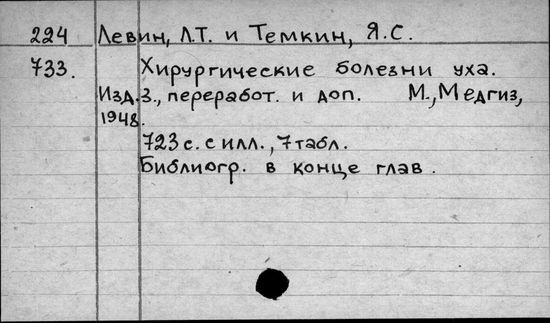 224 Левин, Л.Т. и Темкин, Я.С.
733. Хирургические болезни уха.
Изд.3., переработ. и доп. М., Медгиз,
1948.
723 с. с илл., 7 табл.
Библиогр. в конце глав.